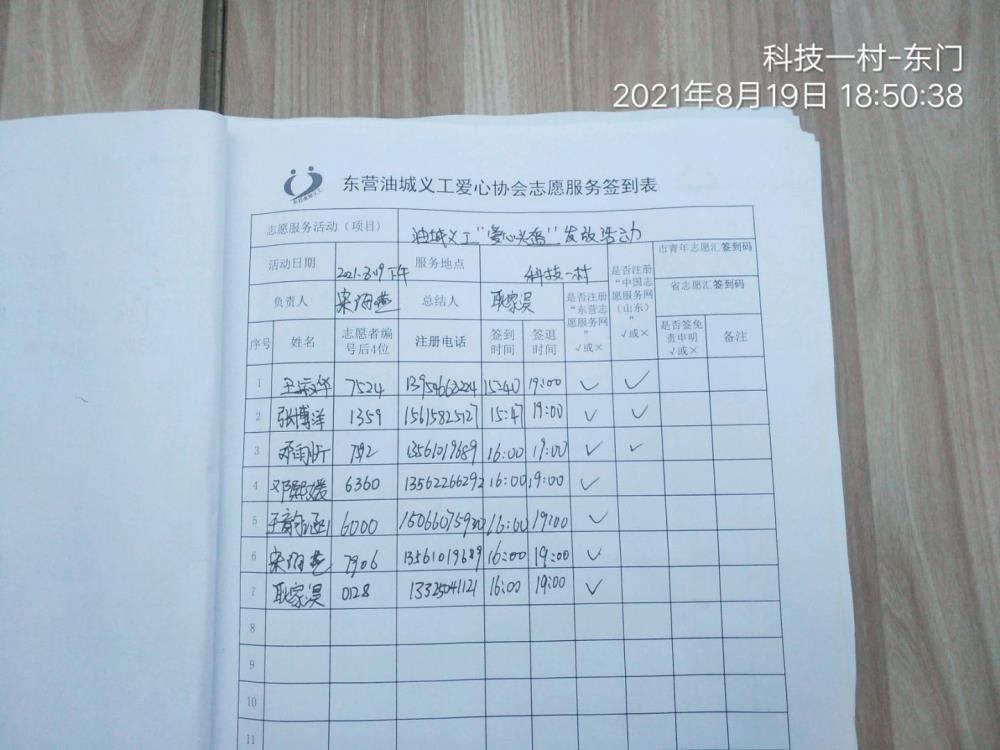 科技一村-东门
2021年8月19日 18:50:38
东营油城义工爱心协会志愿服务签到表
志愿服务活动（项目） 油城义工"爱心粥" 发放活动
市青年志愿汇签到码
活动日期 2021.8.19下午 服务地点 科技一村
是否注册"中国志愿服务网（山东）" √或×
省志愿汇签到码
负责人 总结人 耿家淏
是否注册"东营志愿服务网" √或×
序号 姓名 志愿者编号后4位 注册电话 签到时间 签退时间 是否签免责申明 √或× 备注
1 7524 15:40 19:00 √ √
2 张博洋 1359 15615825127 15:47 19:00 √ √
3 792 13561019689 16:00 19:00 √ √
4 邓熙媛 6360 13562266292 16:00 19:00 √
5 王韵涵 6000 16:00 19:00 √
6 7906 13561019689 16:00 19:00 √
7 耿家淏 0128 13325041121 16:00 19:00 √
8
9
10
11